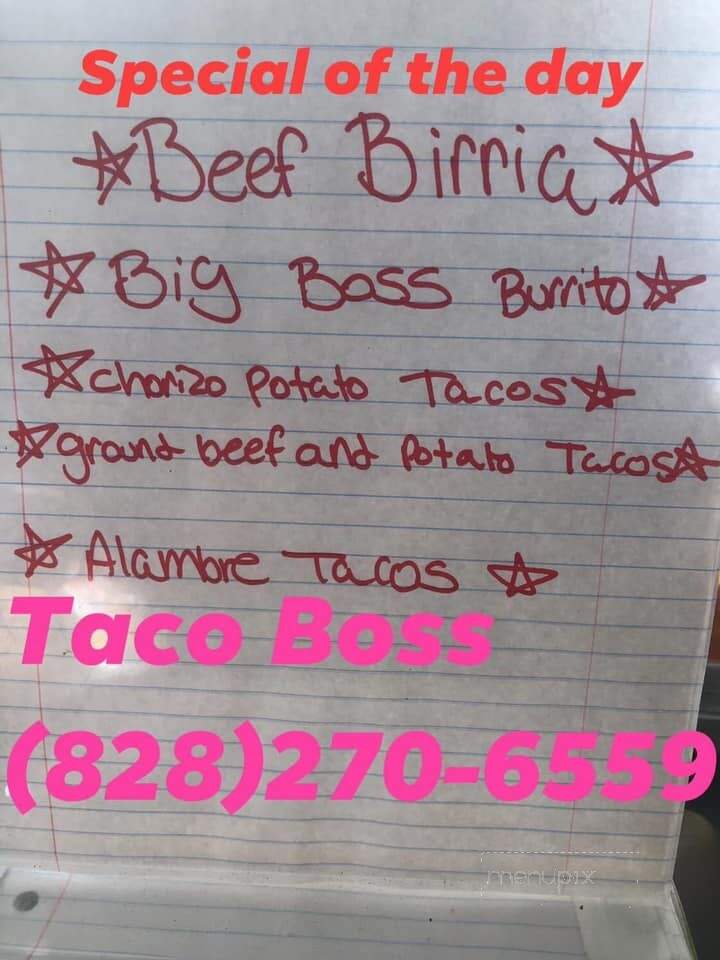 Special of the day
Beef Birria
Big Boss Burrito
chorizo potato Tacos
ground beef and Potato Tacos
Alambre Tacos
Taco Boss
(828)270-6559
menupix